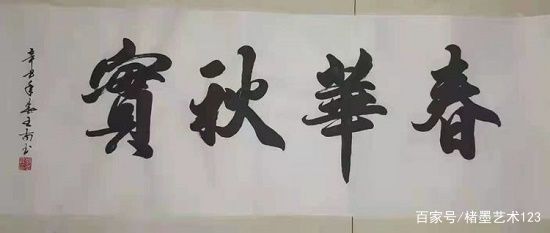 春華秋實
辛丑年春王南書
百家号/楮墨艺术123